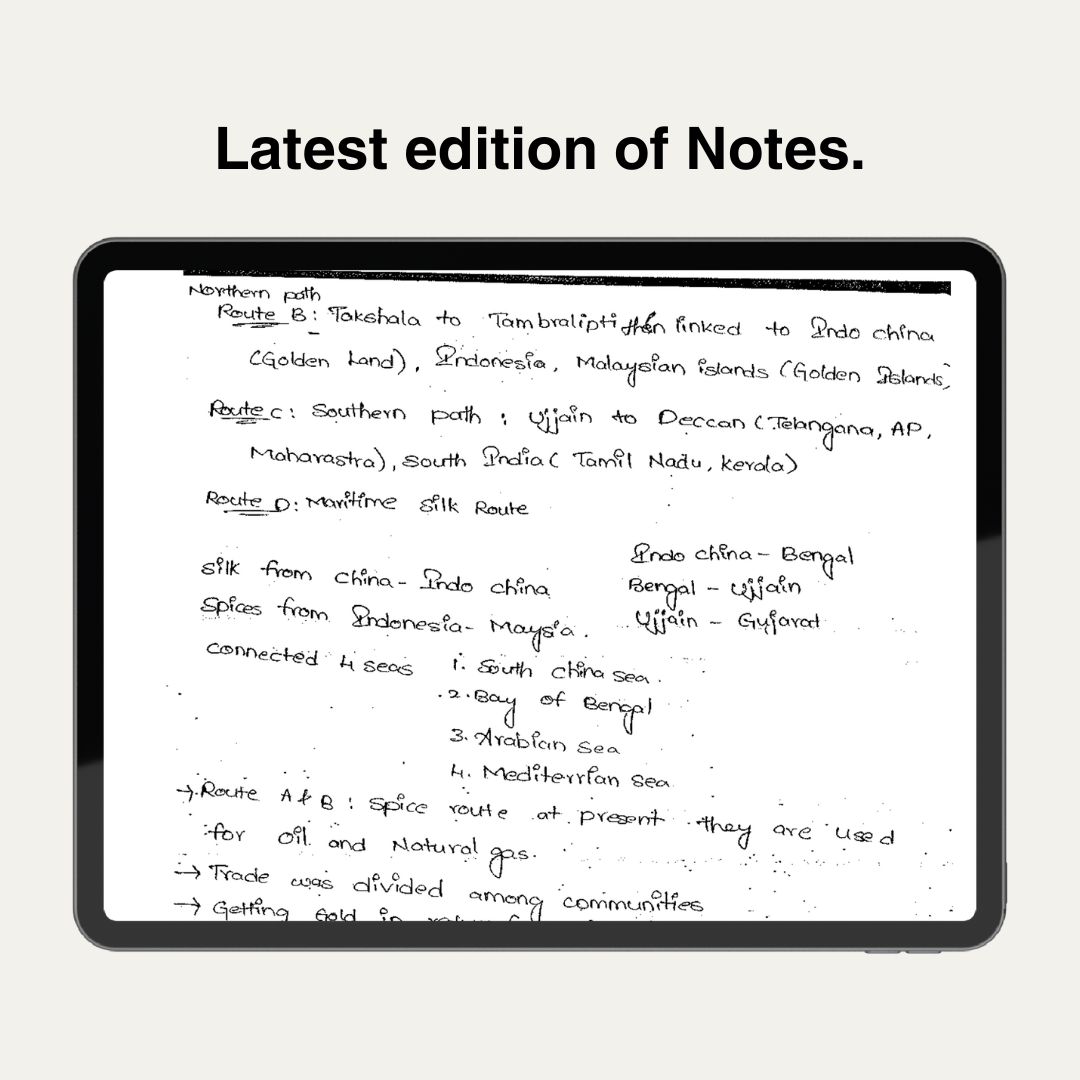 Latest edition of Notes.
Northern path
Route B: Takshala to Tambralipti then linked to Indo china
(Golden Land), Indonesia, Malaysian islands (Golden Islands)
Route C: Southern path : Ujjain to Deccan (Telangana, AP,
Maharastra), South India ( Tamil Nadu, kerala)
Route D: Maritime Silk Route
Indo china - Bengal
silk from china - Indo china
Bengal - Ujjain
Spices from Indonesia - Maysia.
Ujjain - Gujarat
connected 4 seas
1. South china sea.
2. Bay of Bengal
3. Arabian sea
4. Mediterrian sea
→ Route A & B : Spice route at present they are used
for oil and Natural gas.
→ Trade was divided among communities
→ Getting Gold in